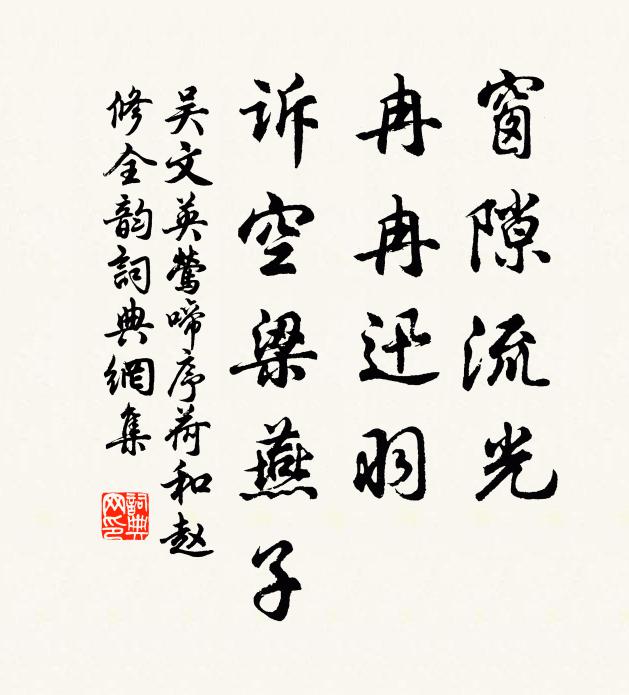 窗隙流光
冉冉迅羽
诉空梁燕子
吴文英莺啼序荷和赵
修全韵词典网集
詞典
网印